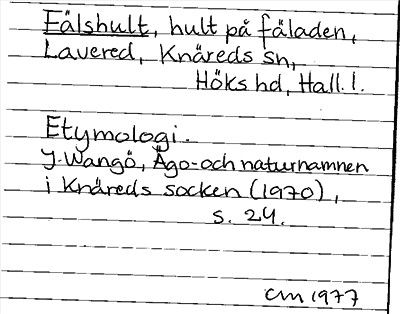 Fälshult, hult på fäladen,
Lavered, Knäreds sn,
Höks hd, Hall. l.
Etymologi.
J. Wangö, Ägo- och naturnamnen
i Knäreds socken (1970),
s. 24.
CM 1977